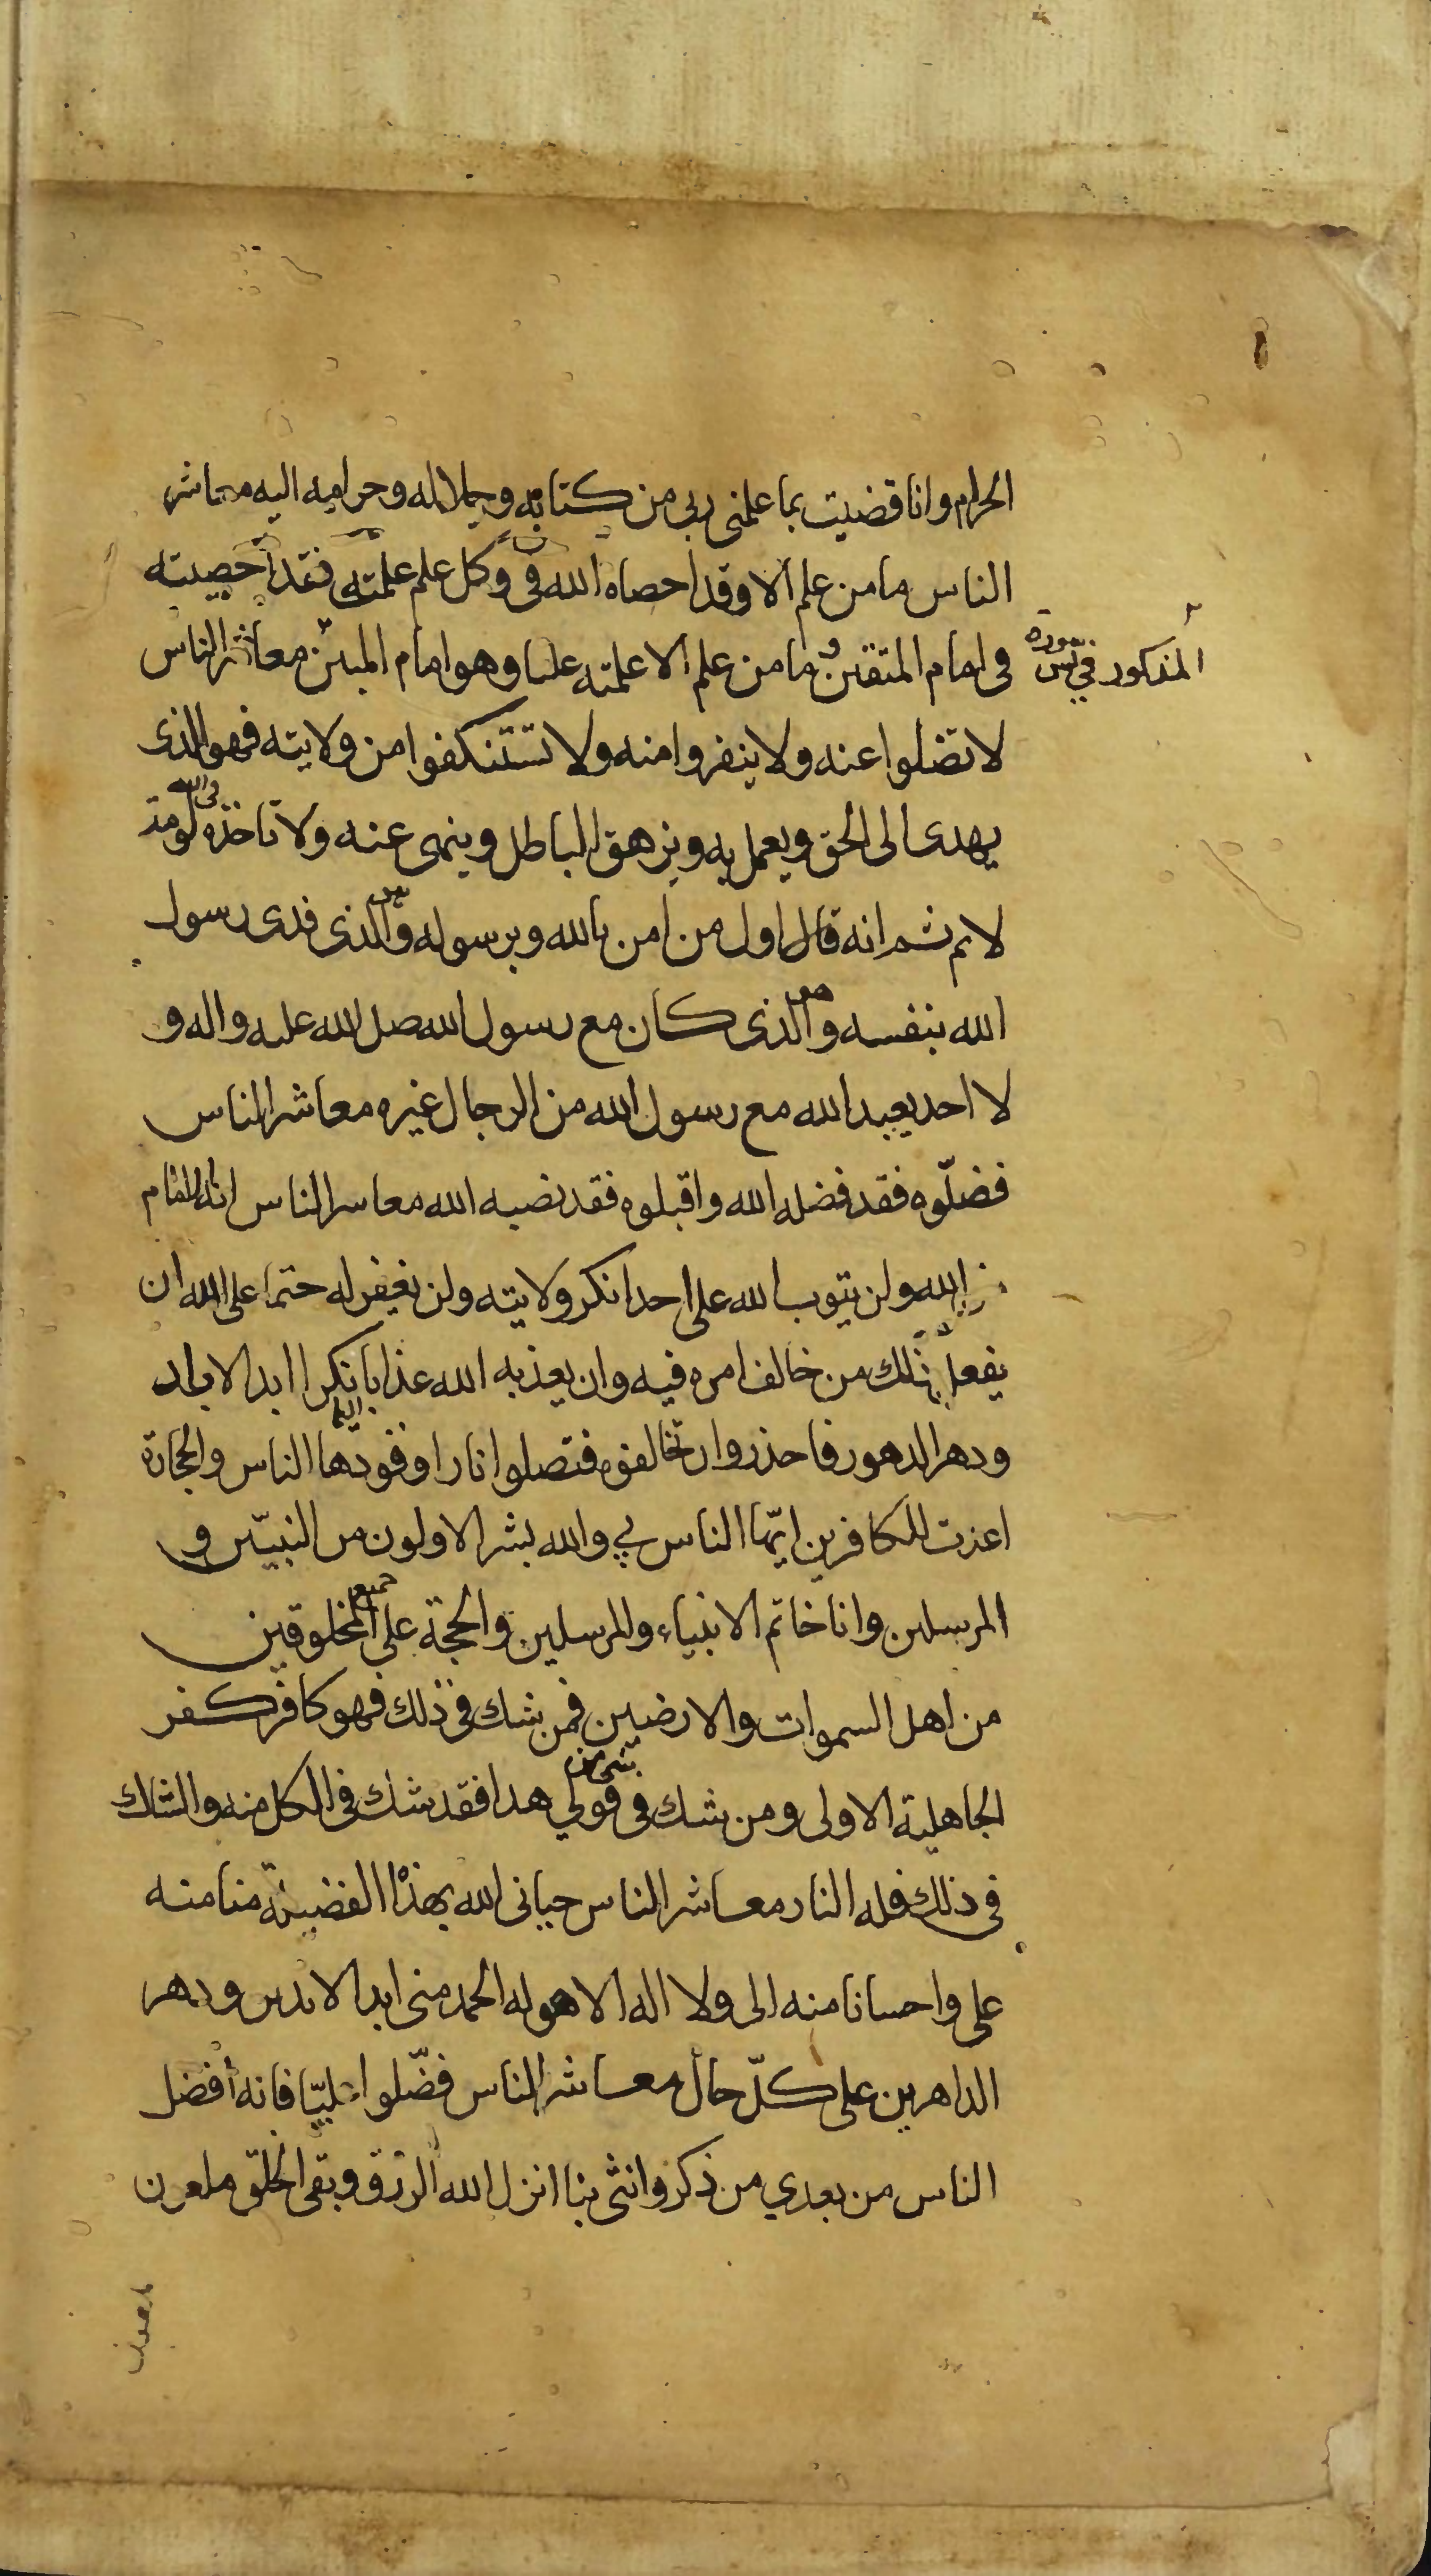 الحرام وانا قضيت بما علمنى ربى من كتابه وحلاله وحرامه اليه معاشر
الناس ما من علم الا وقد احصاه الله فى وكل علم علمته فقد احصيته
فى امام المتقين وما من علم الا علمته عليا وهو امام المبين معاشر الناس
المذكور في سورة يس
لا تضلوا عنه ولا ينفروا منه ولا تستنكفوا من ولايته فهو الذى
يهدى الى الحق ويعمل به ويزهق الباطل وينهى عنه ولا تاخذه فى الله لومة
لائم ثم انه قال اول من امن بالله وبرسوله والذى فدى رسول
الله بنفسه والذى كان مع رسول الله صلى الله عليه واله و
لا احد يعبد الله مع رسول الله من الرجال غيره معاشر الناس
فضلّوه فقد فضله الله واقبلوه فقد نصبه الله معاشر الناس انه امام
من الله ولن يتوب الله على احد انكر ولايته ولن يغفر له حتما على الله ان
يفعل ذلك من خالف امره فيه وان يعذبه الله عذابا نكرا ابد الاباد
ودهر الدهور فاحذروا ان تخالفوه فتصلوا نارا وقودها الناس والحجارة
اعدت للكافرين ايّها الناس بي والله بشر الاولون من النبيّين و
المرسلين وانا خاتم الانبياء والمرسلين والحجة على جميع المخلوقين
من اهل السموات والارضين فمن شك فى ذلك فهو كافر كفر
الجاهلية الاولى ومن شك فى شىء من قولي هذا فقد شك فى الكل منه والشاك
فى ذلك فله النار معاشر الناس حبانى الله بهذا الفضيلة منا منه
على واحسانا منه الى ولا اله الا هو له الحمد منى ابد الابدين ودهر
الداهرين على كلّ حال معاشر الناس فضّلوا عليّا فانه افضل
الناس من بعدي من ذكر وانثى بنا انزل الله الرزق وبقى الخلق ملعون